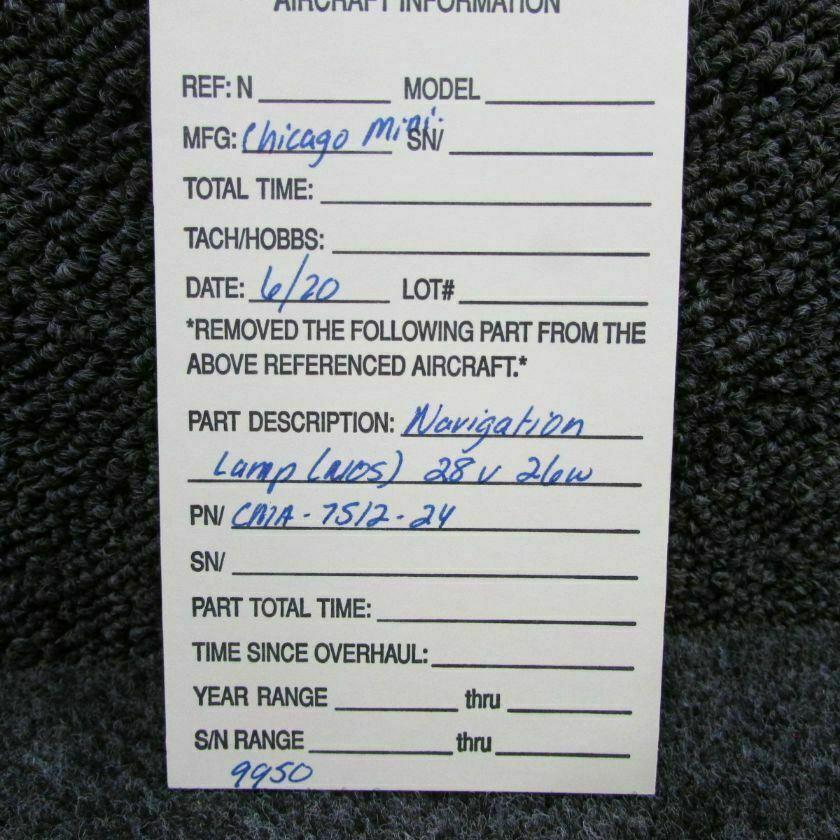 AIRCRAFT INFORMATION
REF: N MODEL
MFG: Chicago Mini. SN/
TOTAL TIME:
TACH/HOBBS:
DATE: 6/20 LOT#
*REMOVED THE FOLLOWING PART FROM THE
ABOVE REFERENCED AIRCRAFT.*
PART DESCRIPTION: Navigation
Lamp (NOS) 28v 26w
PN/ CMA-7512-24
SN/
PART TOTAL TIME:
TIME SINCE OVERHAUL:
YEAR RANGE thru
S/N RANGE thru
9950